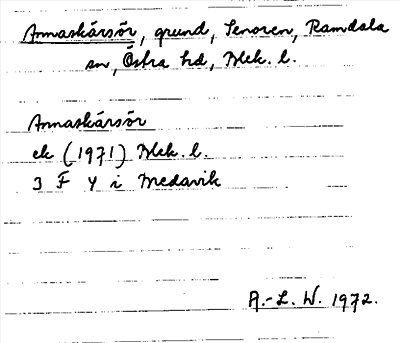 Annaskärsör, grund, Senoren, Ramdala
sn, Östra hd, Blek. l.
Annaskärsör
ek (1971) Blek. l.
3 F Y i Medavik
A.-L. W. 1972.